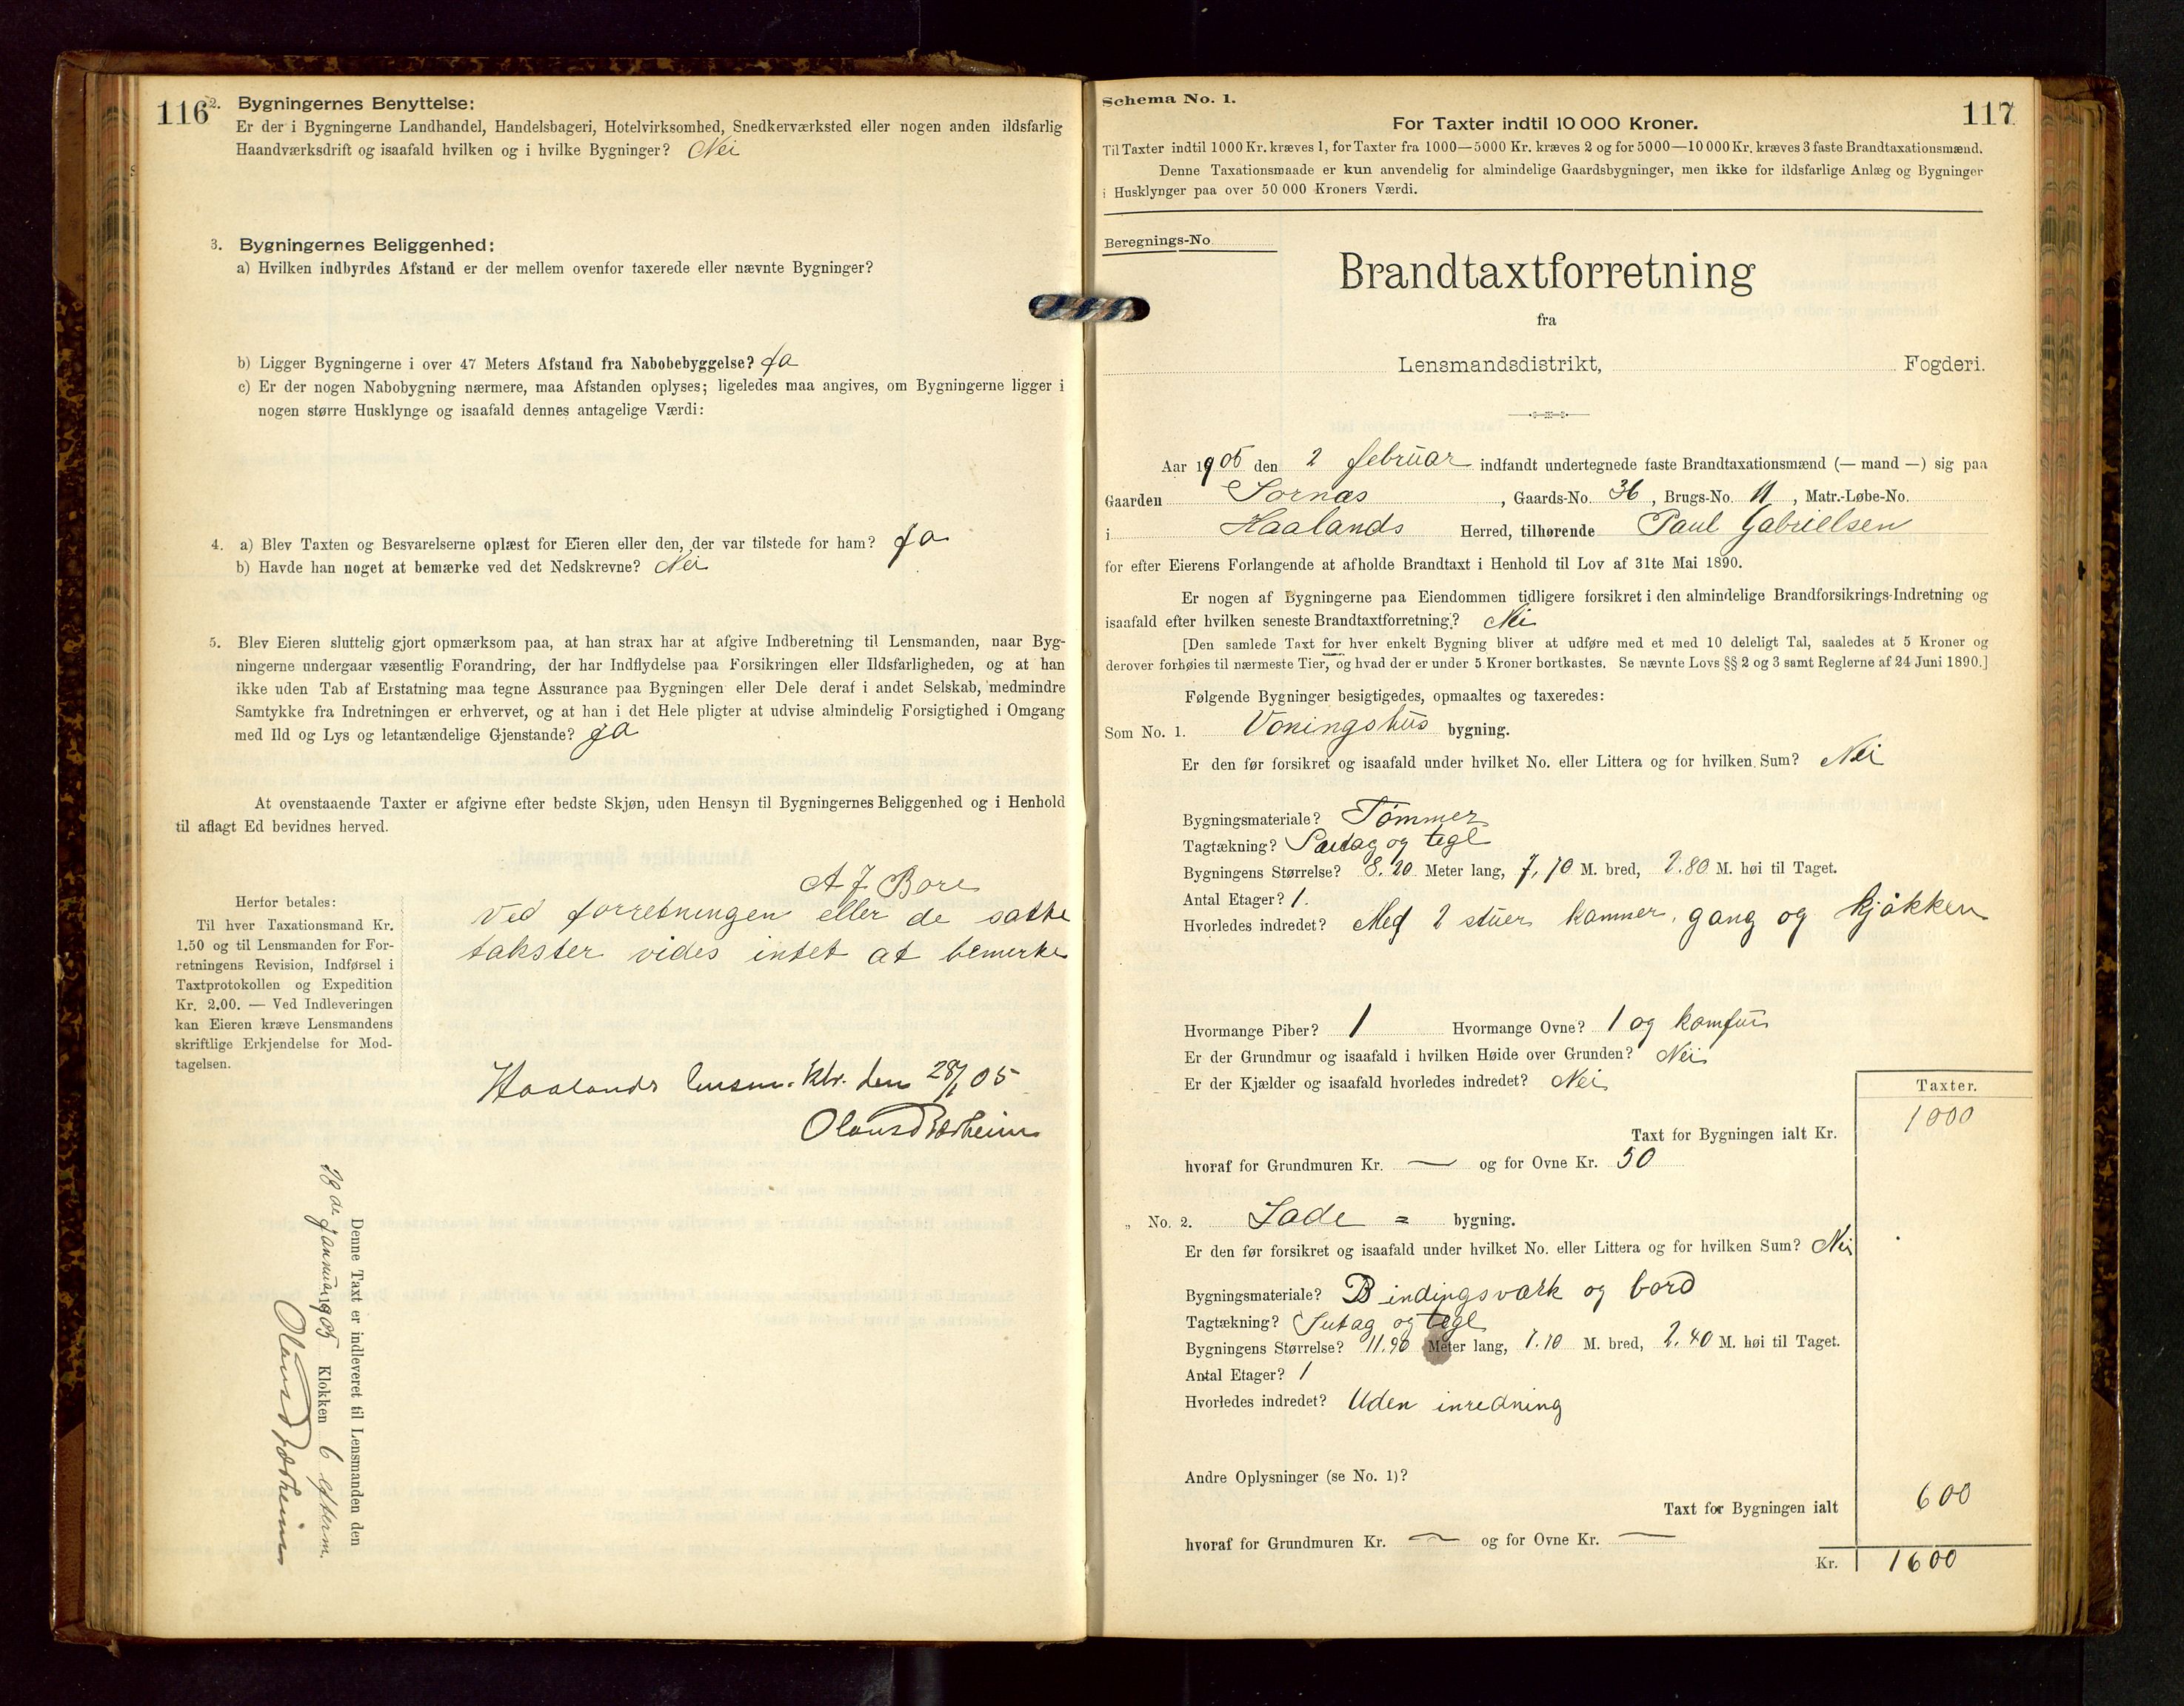 116
2. Bygningernes Benyttelse:
Er der i Bygningerne Landhandel, Handelsbageri, Hotelvirksomhed, Snedkerværksted eller nogen anden ildsfarlig
Haandværksdrift og isaafald hvilken og i hvilke Bygninger? Nei
3. Bygningernes Beliggenhed:
a) Hvilken indbyrdes Afstand er der mellem ovenfor taxerede eller nævnte Bygninger?
b) Ligger Bygningerne i over 47 Meters Afstand fra Nabobebyggelse? Ja
c) Er der nogen Nabobygning nærmere, maa Afstanden oplyses; ligeledes maa angives, om Bygningerne ligger i
nogen større Husklynge og isaafald dennes antagelige Værdi:
4. a) Blev Taxten og Besvarelserne oplæst for Eieren eller den, der var tilstede for ham? Ja
b) Havde han noget at bemærke ved det Nedskrevne? Nei
5. Blev Eieren sluttelig gjort opmærksom paa, at han strax har at afgive Indberetning til Lensmanden, naar Byg-
ningerne undergaar væsentlig Forandring, der har Indflydelse paa Forsikringen eller Ildsfarligheden, og at han
ikke uden Tab af Erstatning maa tegne Assurance paa Bygningen eller Dele deraf i andet Selskab, medmindre
Samtykke fra Indretningen er erhvervet, og at han i det Hele pligter at udvise almindelig Forsigtighed i Omgang
med Ild og Lys og letantændelige Gjenstande? Ja
At ovenstaaende Taxter er afgivne efter bedste Skjøn, uden Hensyn til Bygningernes Beliggenhed og i Henhold
til aflagt Ed bevidnes herved.
A J Bore
Ved forretningen eller de satte
takster vides intet at bemerke
Haalands lensm. ktr. den 28/1 05
Herfor betales:
Til hver Taxationsmand Kr.
1.50 og til Lensmanden for For-
retningens Revision, Indførsel i
Taxtprotokollen og Expedition
Kr. 2.00. — Ved Indleveringen
kan Eieren kræve Lensmandens
skriftlige Erkjendelse for Mod-
tagelsen.
Denne Taxt er indleveret til Lensmanden den
28 de Januar 1905 Klokken 6 efterm.
117
Schema No. 1.
For Taxter indtil 10 000 Kroner.
Til Taxter indtil 1000 Kr. kræves 1, for Taxter fra 1000—5000 Kr. kræves 2 og for 5000—10 000 Kr. kræves 3 faste Brandtaxationsmænd.
Denne Taxationsmaade er kun anvendelig for almindelige Gaardsbygninger, men ikke for ildsfarlige Anlæg og Bygninger
i Husklynger paa over 50 000 Kroners Værdi.
Beregnings-No.
Brandtaxtforretning
fra
Lensmandsdistrikt, Fogderi.
Aar 1905 den 2 februar indfandt undertegnede faste Brandtaxationsmænd (— mand —) sig paa
Gaarden Sørnæs, Gaards-No. 36, Brugs-No. 11, Matr.-Løbe-No.
i Haalands Herred, tilhørende Paul Gabrielsen
for efter Eierens Forlangende at afholde Brandtaxt i Henhold til Lov af 31te Mai 1890.
Er nogen af Bygningerne paa Eiendommen tidligere forsikret i den almindelige Brandforsikrings-Indretning og
isaafald efter hvilken seneste Brandtaxtforretning? Nei
[Den samlede Taxt for hver enkelt Bygning bliver at udføre med et med 10 deleligt Tal, saaledes at 5 Kroner og
derover forhøies til nærmeste Tier, og hvad der er under 5 Kroner bortkastes. Se nævnte Lovs §§ 2 og 3 samt Reglerne af 24 Juni 1890.]
Følgende Bygninger besigtigedes, opmaaltes og taxeredes:
Som No. 1. Voningshus bygning.
Er den før forsikret og isaafald under hvilket No. eller Littera og for hvilken Sum? Nei
Bygningsmateriale? Tømmer
Tagtækning? Sutag og tegl
Bygningens Størrelse? 8.20 Meter lang, 7,10 M. bred, 2.80 M. høi til Taget.
Antal Etager? 1.
Hvorledes indredet? Med 2 stuer kammer, gang og kjøkken
Hvormange Piber? 1 Hvormange Ovne? 1 og komfur
Er der Grundmur og isaafald i hvilken Høide over Grunden? Nei
Er der Kjælder og isaafald hvorledes indredet? Nei
Taxter.
Taxt for Bygningen ialt Kr. 1000
hvoraf for Grundmuren Kr. — og for Ovne Kr. 50
„ No. 2. Lade = bygning.
Er den før forsikret og isaafald under hvilket No. eller Littera og for hvilken Sum? Nei
Bygningsmateriale? Bindingsværk og bord
Tagtækning? Sutag og tegl
Bygningens Størrelse? 11.90 Meter lang, 7.10 M. bred, 2.40 M. høi til Taget.
Antal Etager? 1
Hvorledes indredet? Uden inredning
Andre Oplysninger (se No. 1)?
Taxt for Bygningen ialt 600
hvoraf for Grundmuren Kr. — og for Ovne Kr. —
Kr. 1600